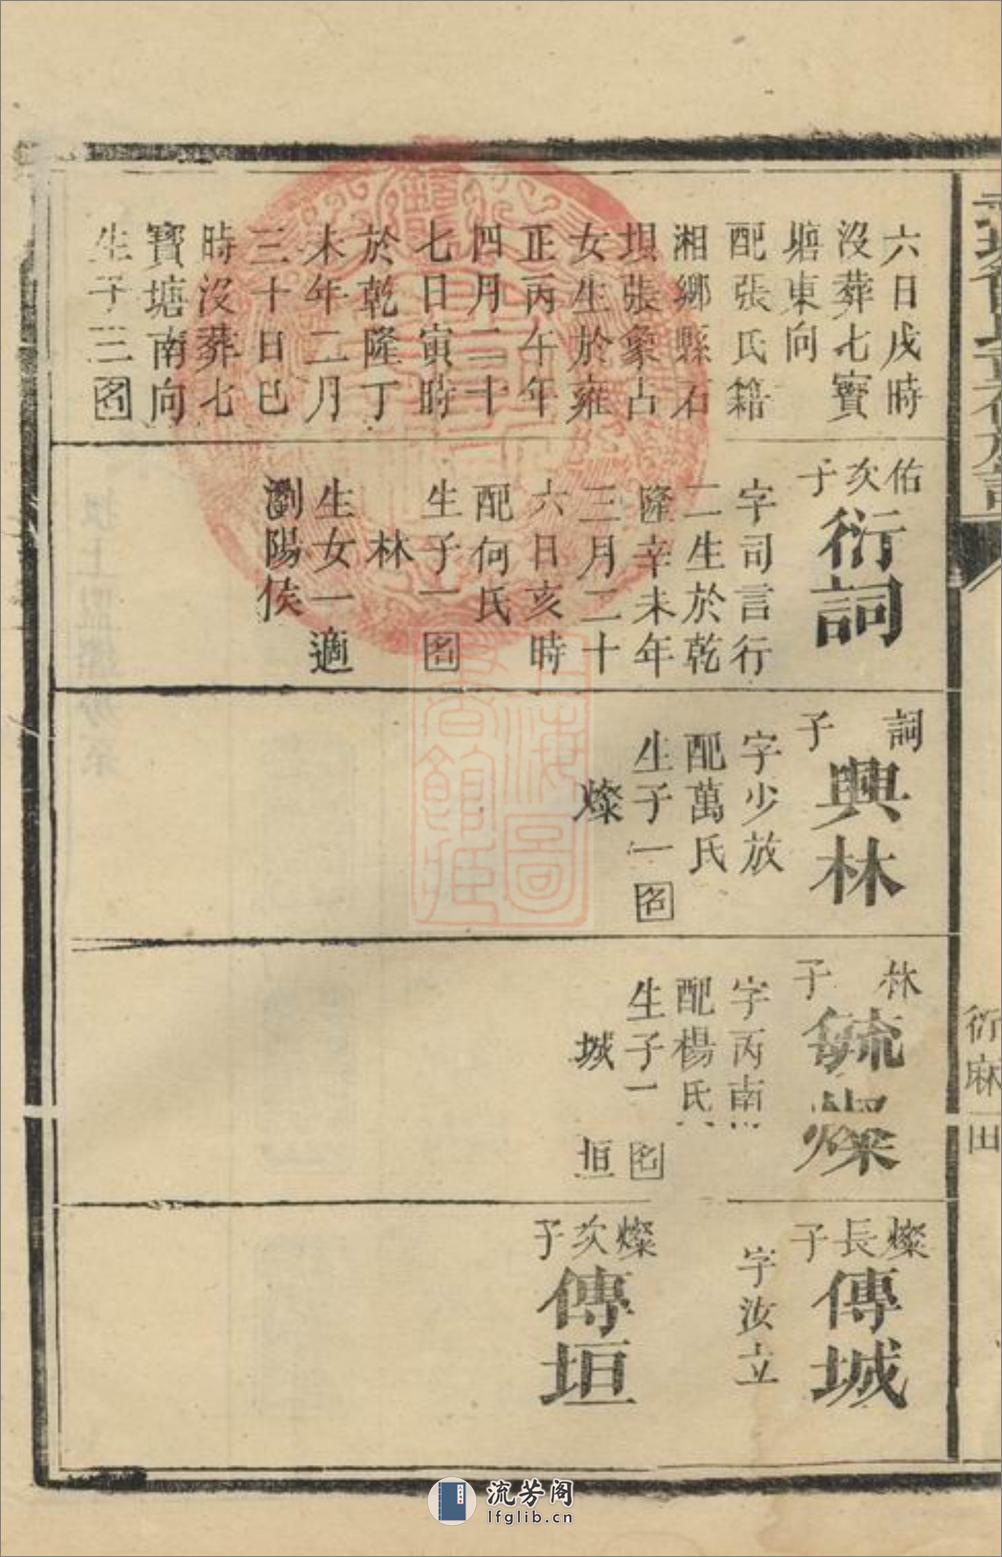 六日戌時
沒葬七寶
塘東向
配張氏籍
湘鄉縣石
垻張象占
女生於雍
正丙午年
四月二十
七日寅時
於乾隆丁
未年二月
三十日巳
時沒葬七
寶塘南向
生子三名
佑次子
衍詞
字司言行
二生於乾
隆辛未年
三月二十
六日亥時
配何氏
生子一名
林
生女一適
瀏陽侯
詞子
興林
字少放
配萬氏
生子一名
燦
林子
毓燦
字丙南
配楊氏
生子 名
城 垣
燦長子
傳城
字汝立
燦次子
傳垣
衍麻田
上海圖書館藏
流芳阁
lfglib.cn